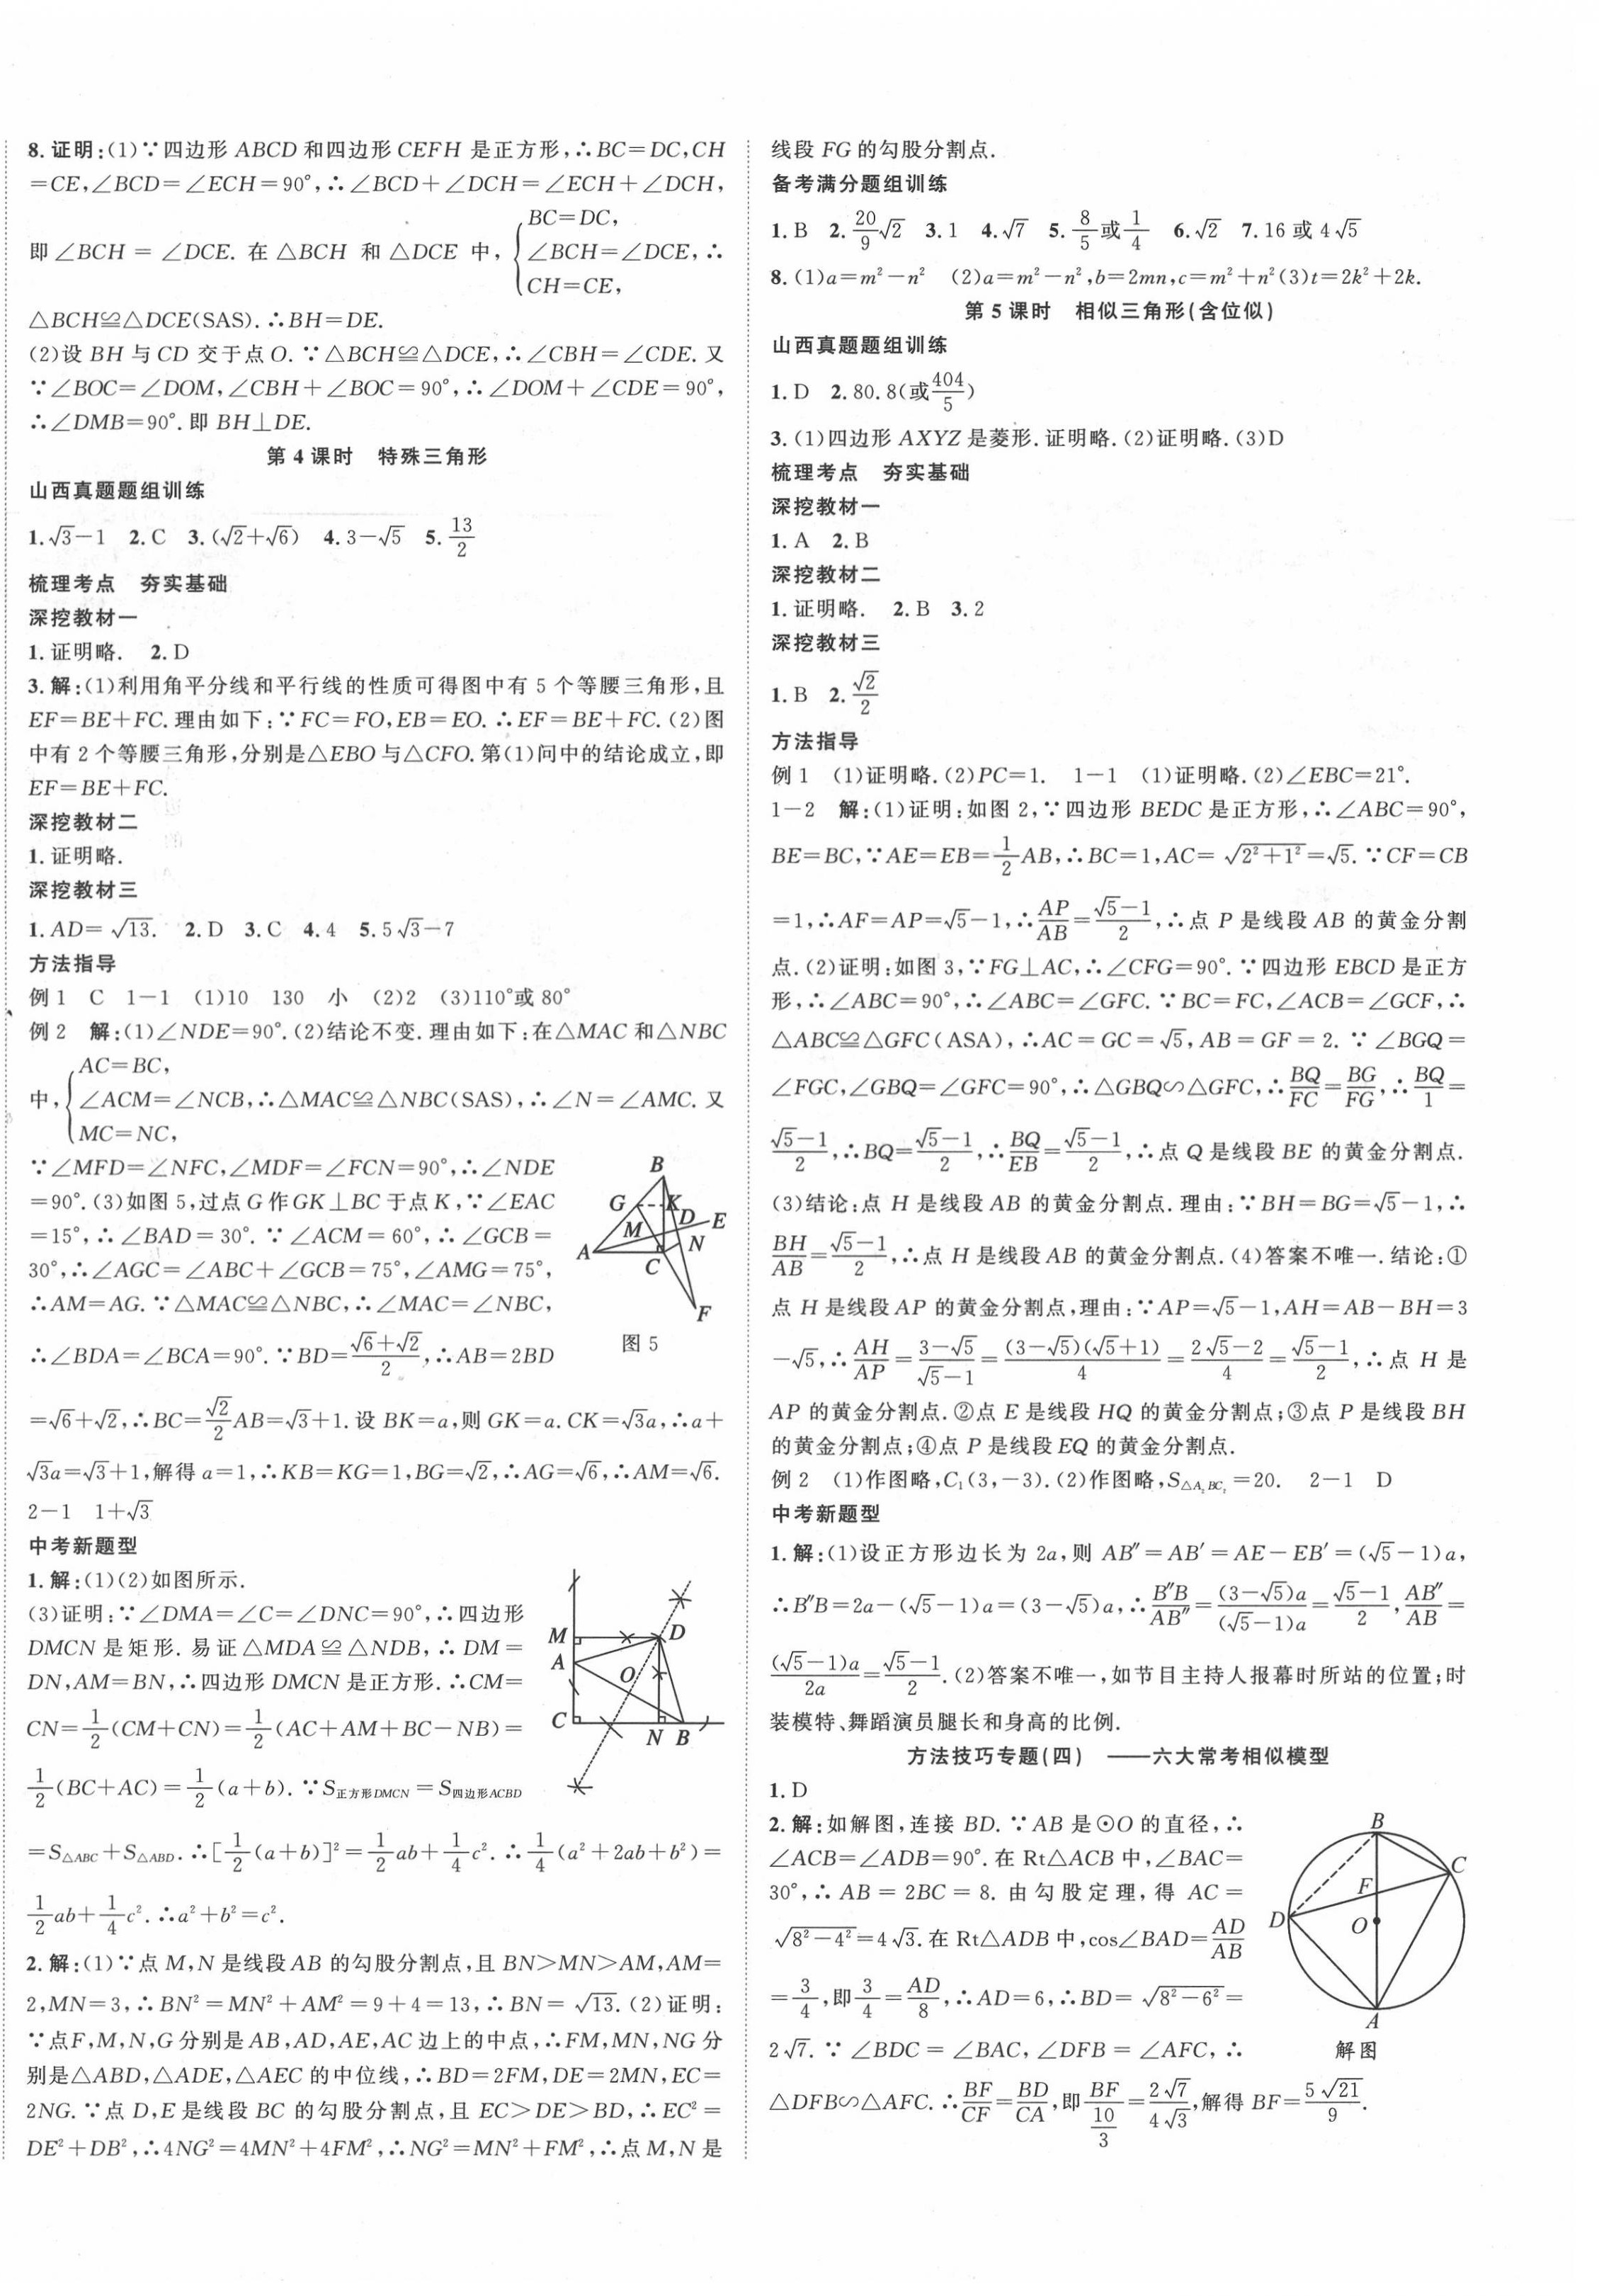 8.证明:(1)∵四边形 ABCD 和四边形 CEFH 是正方形,∴BC=DC,CH
=CE,∠BCD=∠ECH=90°,∴∠BCD+∠DCH=∠ECH+∠DCH,
即∠BCH = ∠DCE. 在 △BCH 和 △DCE 中, { BC=DC, ∠BCH=∠DCE, CH=CE, ∴
△BCH≌△DCE(SAS).∴BH=DE.
(2)设 BH 与 CD 交于点 O.∵△BCH≌△DCE,∴∠CBH=∠CDE.又
∵∠BOC=∠DOM,∠CBH+∠BOC=90°,∴∠DOM+∠CDE=90°,
∴∠DMB=90°.即 BH⊥DE.
第 4 课时 特殊三角形
山西真题题组训练
1.√3-1 2.C 3.(√2+√6) 4.3-√5 5.13/2
梳理考点 夯实基础
深挖教材一
1.证明略. 2.D
3.解:(1)利用角平分线和平行线的性质可得图中有 5 个等腰三角形,且
EF=BE+FC.理由如下:∵FC=FO,EB=EO.∴EF=BE+FC.(2)图
中有 2 个等腰三角形,分别是△EBO与△CFO.第(1)问中的结论成立,即
EF=BE+FC.
深挖教材二
1.证明略.
深挖教材三
1.AD=√13. 2.D 3.C 4.4 5.5√3-7
方法指导
例 1 C 1-1 (1)10 130 小 (2)2 (3)110°或 80°
例 2 解:(1)∠NDE=90°.(2)结论不变.理由如下:在△MAC和△NBC
中, { AC=BC, ∠ACM=∠NCB, MC=NC, ∴△MAC≌△NBC(SAS),∴∠N=∠AMC.又
∵∠MFD=∠NFC,∠MDF=∠FCN=90°,∴∠NDE
=90°.(3)如图 5,过点G作GK⊥BC于点K,∵∠EAC
=15°,∴∠BAD=30°.∵∠ACM=60°,∴∠GCB=
30°,∴∠AGC=∠ABC+∠GCB=75°,∠AMG=75°,
∴AM=AG.∵△MAC≌△NBC,∴∠MAC=∠NBC,
∴∠BDA=∠BCA=90°.∵BD=(√6+√2)/2,∴AB=2BD
=√6+√2,∴BC=√2/2AB=√3+1.设 BK=a,则 GK=a.CK=√3a,∴a+
√3a=√3+1,解得 a=1,∴KB=KG=1,BG=√2,∴AG=√6,∴AM=√6.
B
G K
D
E
M N
A
C
F
图 5
2-1 1+√3
中考新题型
1.解:(1)(2)如图所示.
(3)证明:∵∠DMA=∠C=∠DNC=90°,∴四边形
DMCN 是矩形.易证△MDA≌△NDB,∴DM=
DN,AM=BN,∴四边形 DMCN 是正方形.∴CM=
CN=1/2(CM+CN)=1/2(AC+AM+BC-NB)=
1/2(BC+AC)=1/2(a+b).∵S正方形DMCN=S四边形ACBD
=S△ABC+S△ABD.∴[1/2(a+b)]²=1/2ab+1/4c².∴1/4(a²+2ab+b²)=
1/2ab+1/4c².∴a²+b²=c².
M D
A
O
C
N B
2.解:(1)∵点 M,N 是线段 AB 的勾股分割点,且 BN>MN>AM,AM=
2,MN=3,∴BN²=MN²+AM²=9+4=13,∴BN=√13.(2)证明:
∵点F,M,N,G 分别是 AB,AD,AE,AC 边上的中点,∴FM,MN,NG 分
别是△ABD,△ADE,△AEC 的中位线,∴BD=2FM,DE=2MN,EC=
2NG.∵点 D,E 是线段 BC 的勾股分割点,且 EC>DE>BD,∴EC²=
DE²+DB²,∴4NG²=4MN²+4FM²,∴NG²=MN²+FM²,∴点 M,N 是
线段 FG 的勾股分割点.
备考满分题组训练
1.B 2.20/9√2 3.1 4.√7 5.8/5或1/4 6.√2 7.16 或 4√5
8.(1)a=m²-n² (2)a=m²-n²,b=2mn,c=m²+n²(3)t=2k²+2k.
第 5 课时 相似三角形(含位似)
山西真题题组训练
1.D 2.80.8(或404/5)
3.(1)四边形 AXYZ 是菱形.证明略.(2)证明略.(3)D
梳理考点 夯实基础
深挖教材一
1.A 2.B
深挖教材二
1.证明略. 2.B 3.2
深挖教材三
1.B 2.√2/2
方法指导
例 1 (1)证明略.(2)PC=1. 1-1 (1)证明略.(2)∠EBC=21°.
1-2 解:(1)证明:如图 2,∵四边形 BEDC 是正方形,∴∠ABC=90°,
BE=BC,∵AE=EB=1/2AB,∴BC=1,AC=√(2²+1²)=√5.∵CF=CB
=1,∴AF=AP=√5-1,∴AP/AB=(√5-1)/2,∴点 P 是线段 AB 的黄金分割
点.(2)证明:如图 3,∵FG⊥AC,∴∠CFG=90°.∵四边形 EBCD 是正方
形,∴∠ABC=90°,∴∠ABC=∠GFC.∵BC=FC,∠ACB=∠GCF,∴
△ABC≌△GFC(ASA),∴AC=GC=√5,AB=GF=2.∵∠BGQ=
∠FGC,∠GBQ=∠GFC=90°,∴△GBQ∽△GFC,∴BQ/FC=BG/FG,∴BQ/1=
(√5-1)/2,∴BQ=(√5-1)/2,∴BQ/EB=(√5-1)/2,∴点 Q 是线段 BE 的黄金分割点.
(3)结论:点 H 是线段 AB 的黄金分割点.理由:∵BH=BG=√5-1,∴
BH/AB=(√5-1)/2,∴点 H 是线段 AB 的黄金分割点.(4)答案不唯一.结论:①
点 H 是线段 AP 的黄金分割点,理由:∵AP=√5-1,AH=AB-BH=3
-√5,∴AH/AP=(3-√5)/(√5-1)=(3-√5)(√5+1)/4=(2√5-2)/4=(√5-1)/2,∴点 H 是
AP 的黄金分割点.②点 E 是线段 HQ 的黄金分割点;③点 P 是线段 BH
的黄金分割点;④点 P 是线段 EQ 的黄金分割点.
例 2 (1)作图略,C₁(3,-3).(2)作图略,S△A₂BC₂=20. 2-1 D
中考新题型
1.解:(1)设正方形边长为 2a,则 AB″=AB′=AE-EB′=(√5-1)a,
∴B″B=2a-(√5-1)a=(3-√5)a,∴B″B/AB″=(3-√5)a/(√5-1)a=(√5-1)/2,AB″/AB=
(√5-1)a/2a=(√5-1)/2.(2)答案不唯一,如节目主持人报幕时所站的位置;时
装模特、舞蹈演员腿长和身高的比例.
方法技巧专题(四) ——六大常考相似模型
1.D
2.解:如解图,连接 BD.∵AB 是⊙O 的直径,∴
∠ACB=∠ADB=90°.在 Rt△ACB 中,∠BAC=
30°,∴AB=2BC=8.由勾股定理,得 AC=
√(8²-4²)=4√3.在 Rt△ADB 中,cos∠BAD=AD/AB
=3/4,即3/4=AD/8,∴AD=6,∴BD=√(8²-6²)=
2√7.∵∠BDC=∠BAC,∠DFB=∠AFC,∴
△DFB∽△AFC.∴BF/CF=BD/CA,即BF/(10/3)=2√7/4√3,解得 BF=5√21/9.
B
C
F
D
O
A
解图